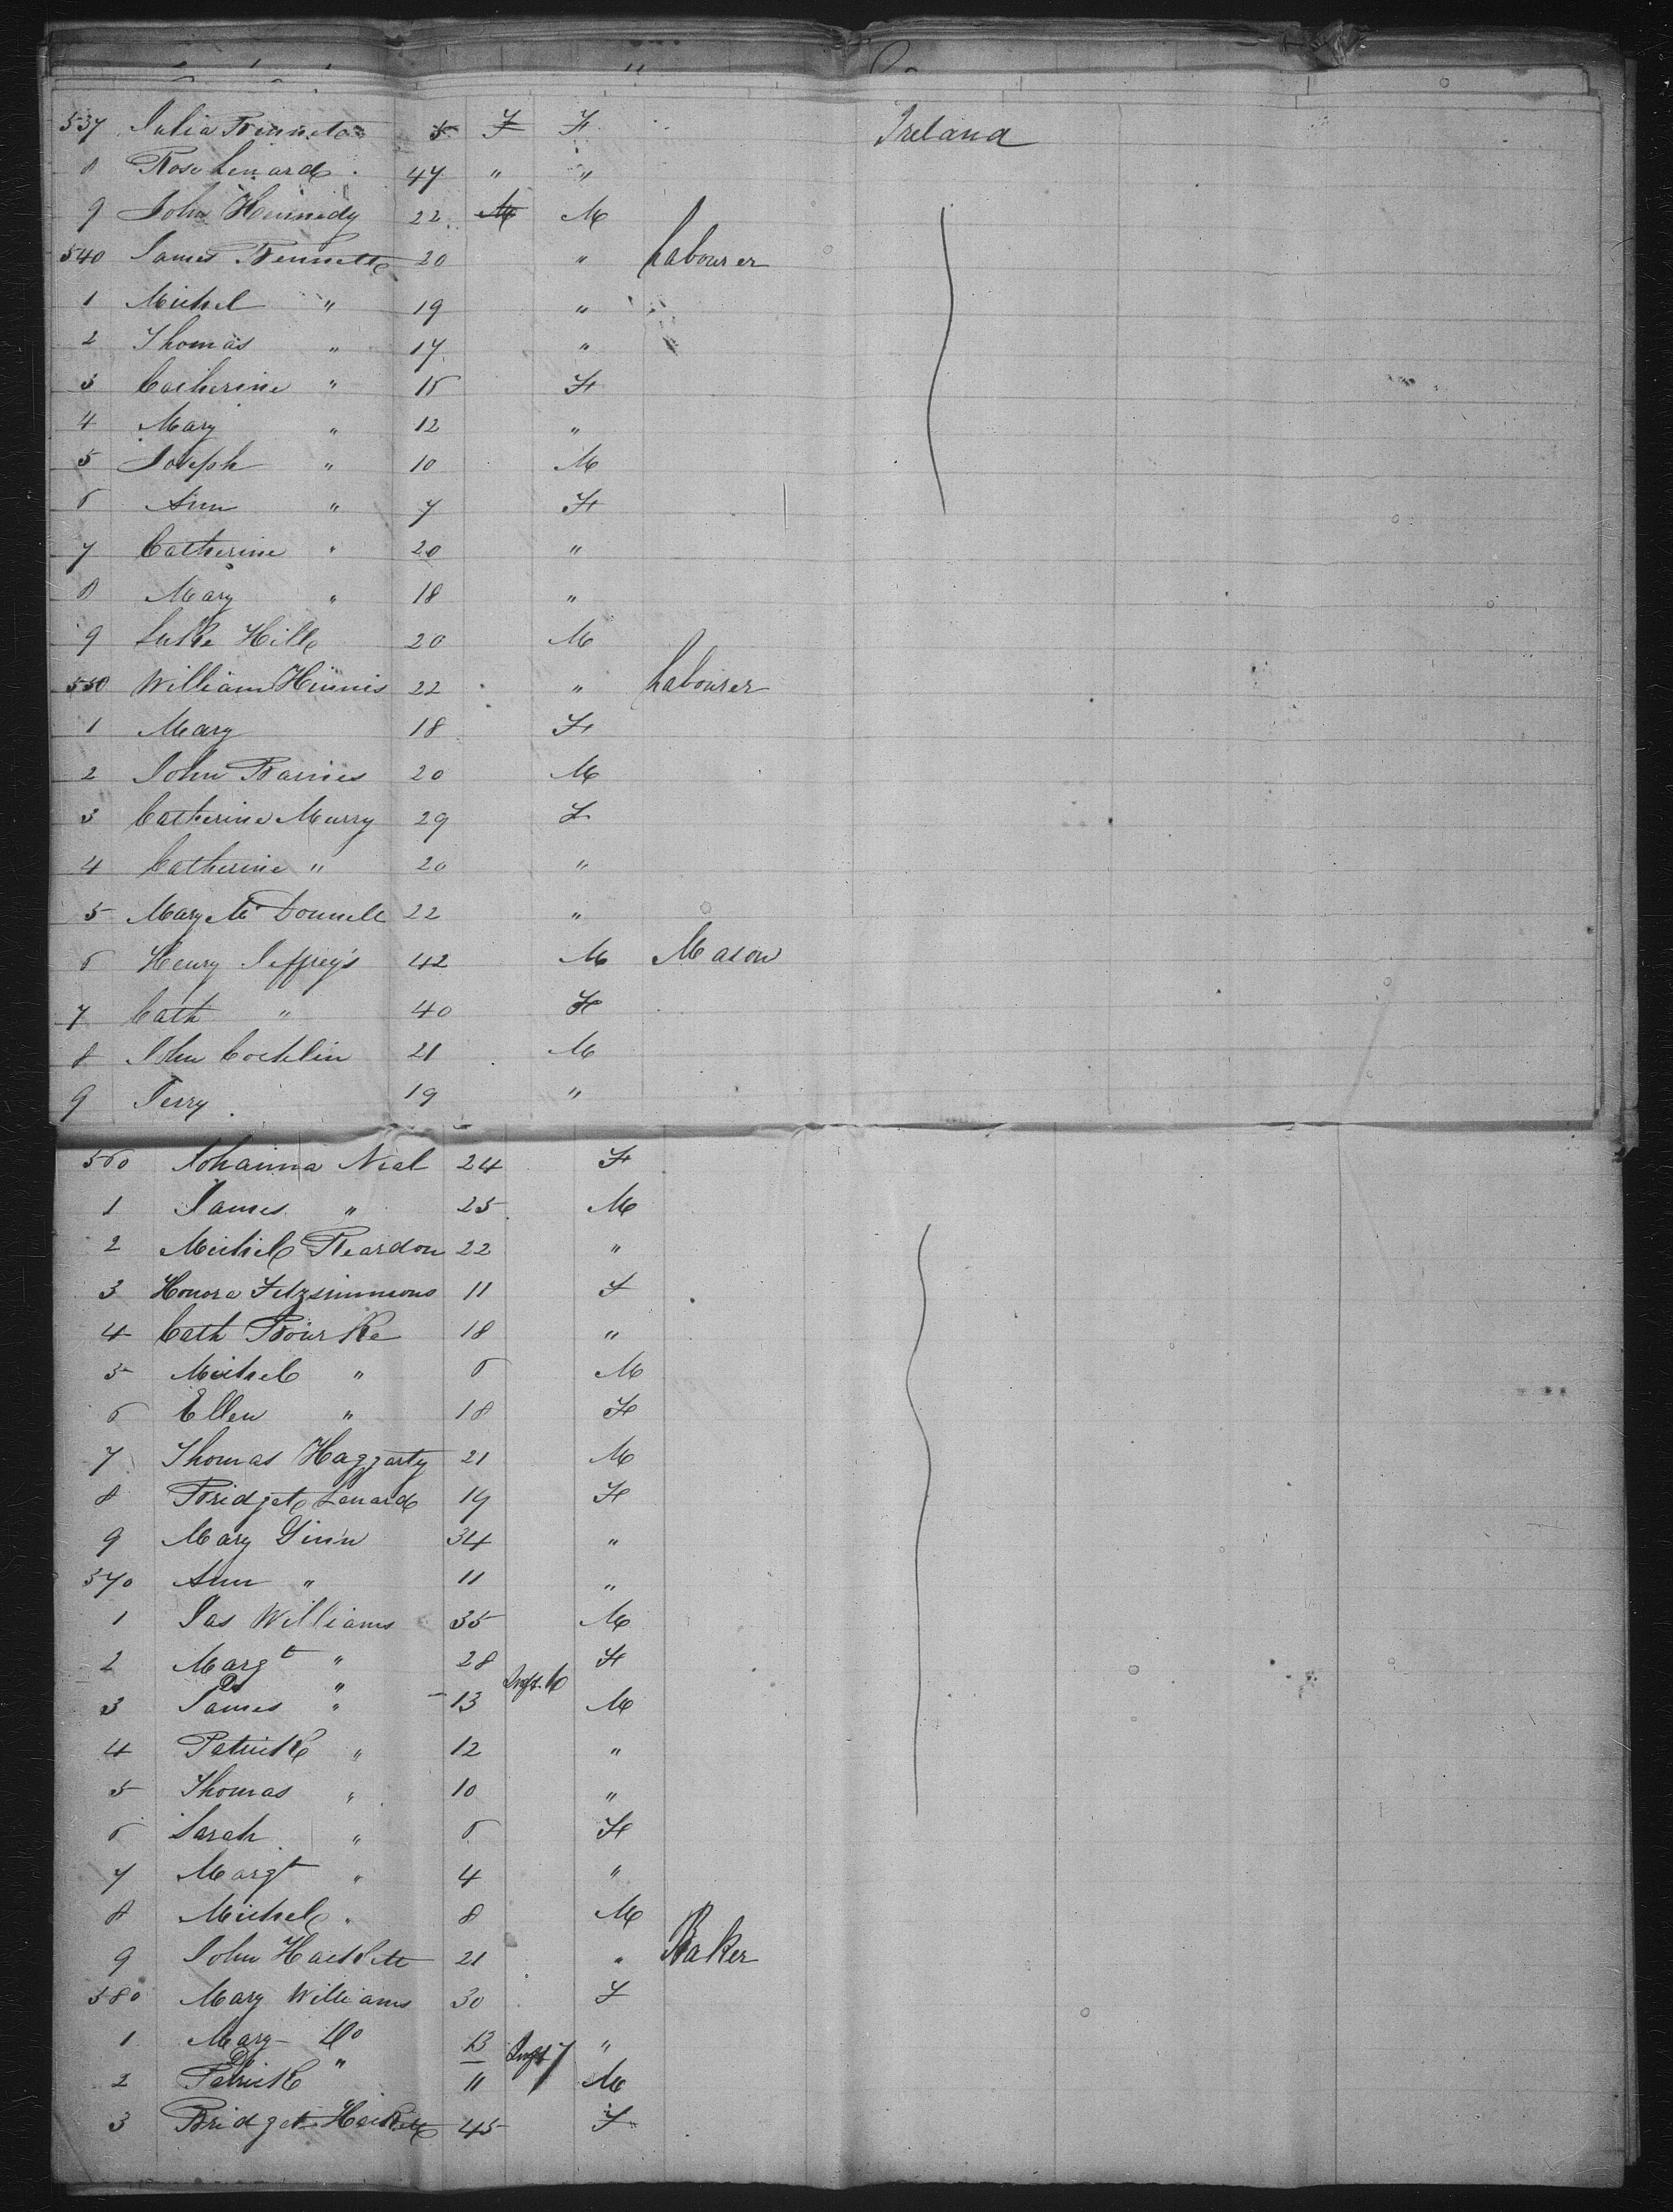 537 Julia Bennett 5 F F Ireland
8 Rose Lenard 47 " "
9 John Kennedy 22 M M
540 James Bennett 20 " Labourer
1 Michel " 19 "
2 Thomas " 17 "
3 Catherine " 15 F
4 Mary " 12 "
5 Joseph " 10 M
6 Ann " 7 F
7 Catherine " 20 "
8 Mary " 18 "
9 Luke Hill 20 M
550 William Hinnis 22 " Labourer
1 Mary 18 F
2 John Barnes 20 M
3 Catherine Murry 29 F
4 Catherine " 20 "
5 Mary Mc Donnell 22 "
6 Henry Jeffrey's 42 M Mason
7 Cath " 40 F
8 John Cochlin 21 M
9 Terry 19 "
560 Johanna Neal 24 F
1 James " 25 M
2 Michel Reardon 22 "
3 Honora Fitzsimmons 11 F
4 Cath Bourke 18 "
5 Michel " 6 M
6 Ellen " 18 F
7 Thomas Haggarty 21 M
8 Bridget Lenard 19 F
9 Mary Ginn 34 "
570 Ann " 11 "
1 Jas Williams 35 M
2 Margt " 28 F
Do "
3 James " 13 M
4 Patrick " 12 "
5 Thomas " 10 "
6 Sarah " 6 F
7 Margt " 4 "
8 Michel " 8 M
9 John Hackett 21 " Baker
580 Mary Williams 30 F
1 Mary Do 13 "
Do "
2 Patrick 11 M
3 Bridget Hackett 45 F